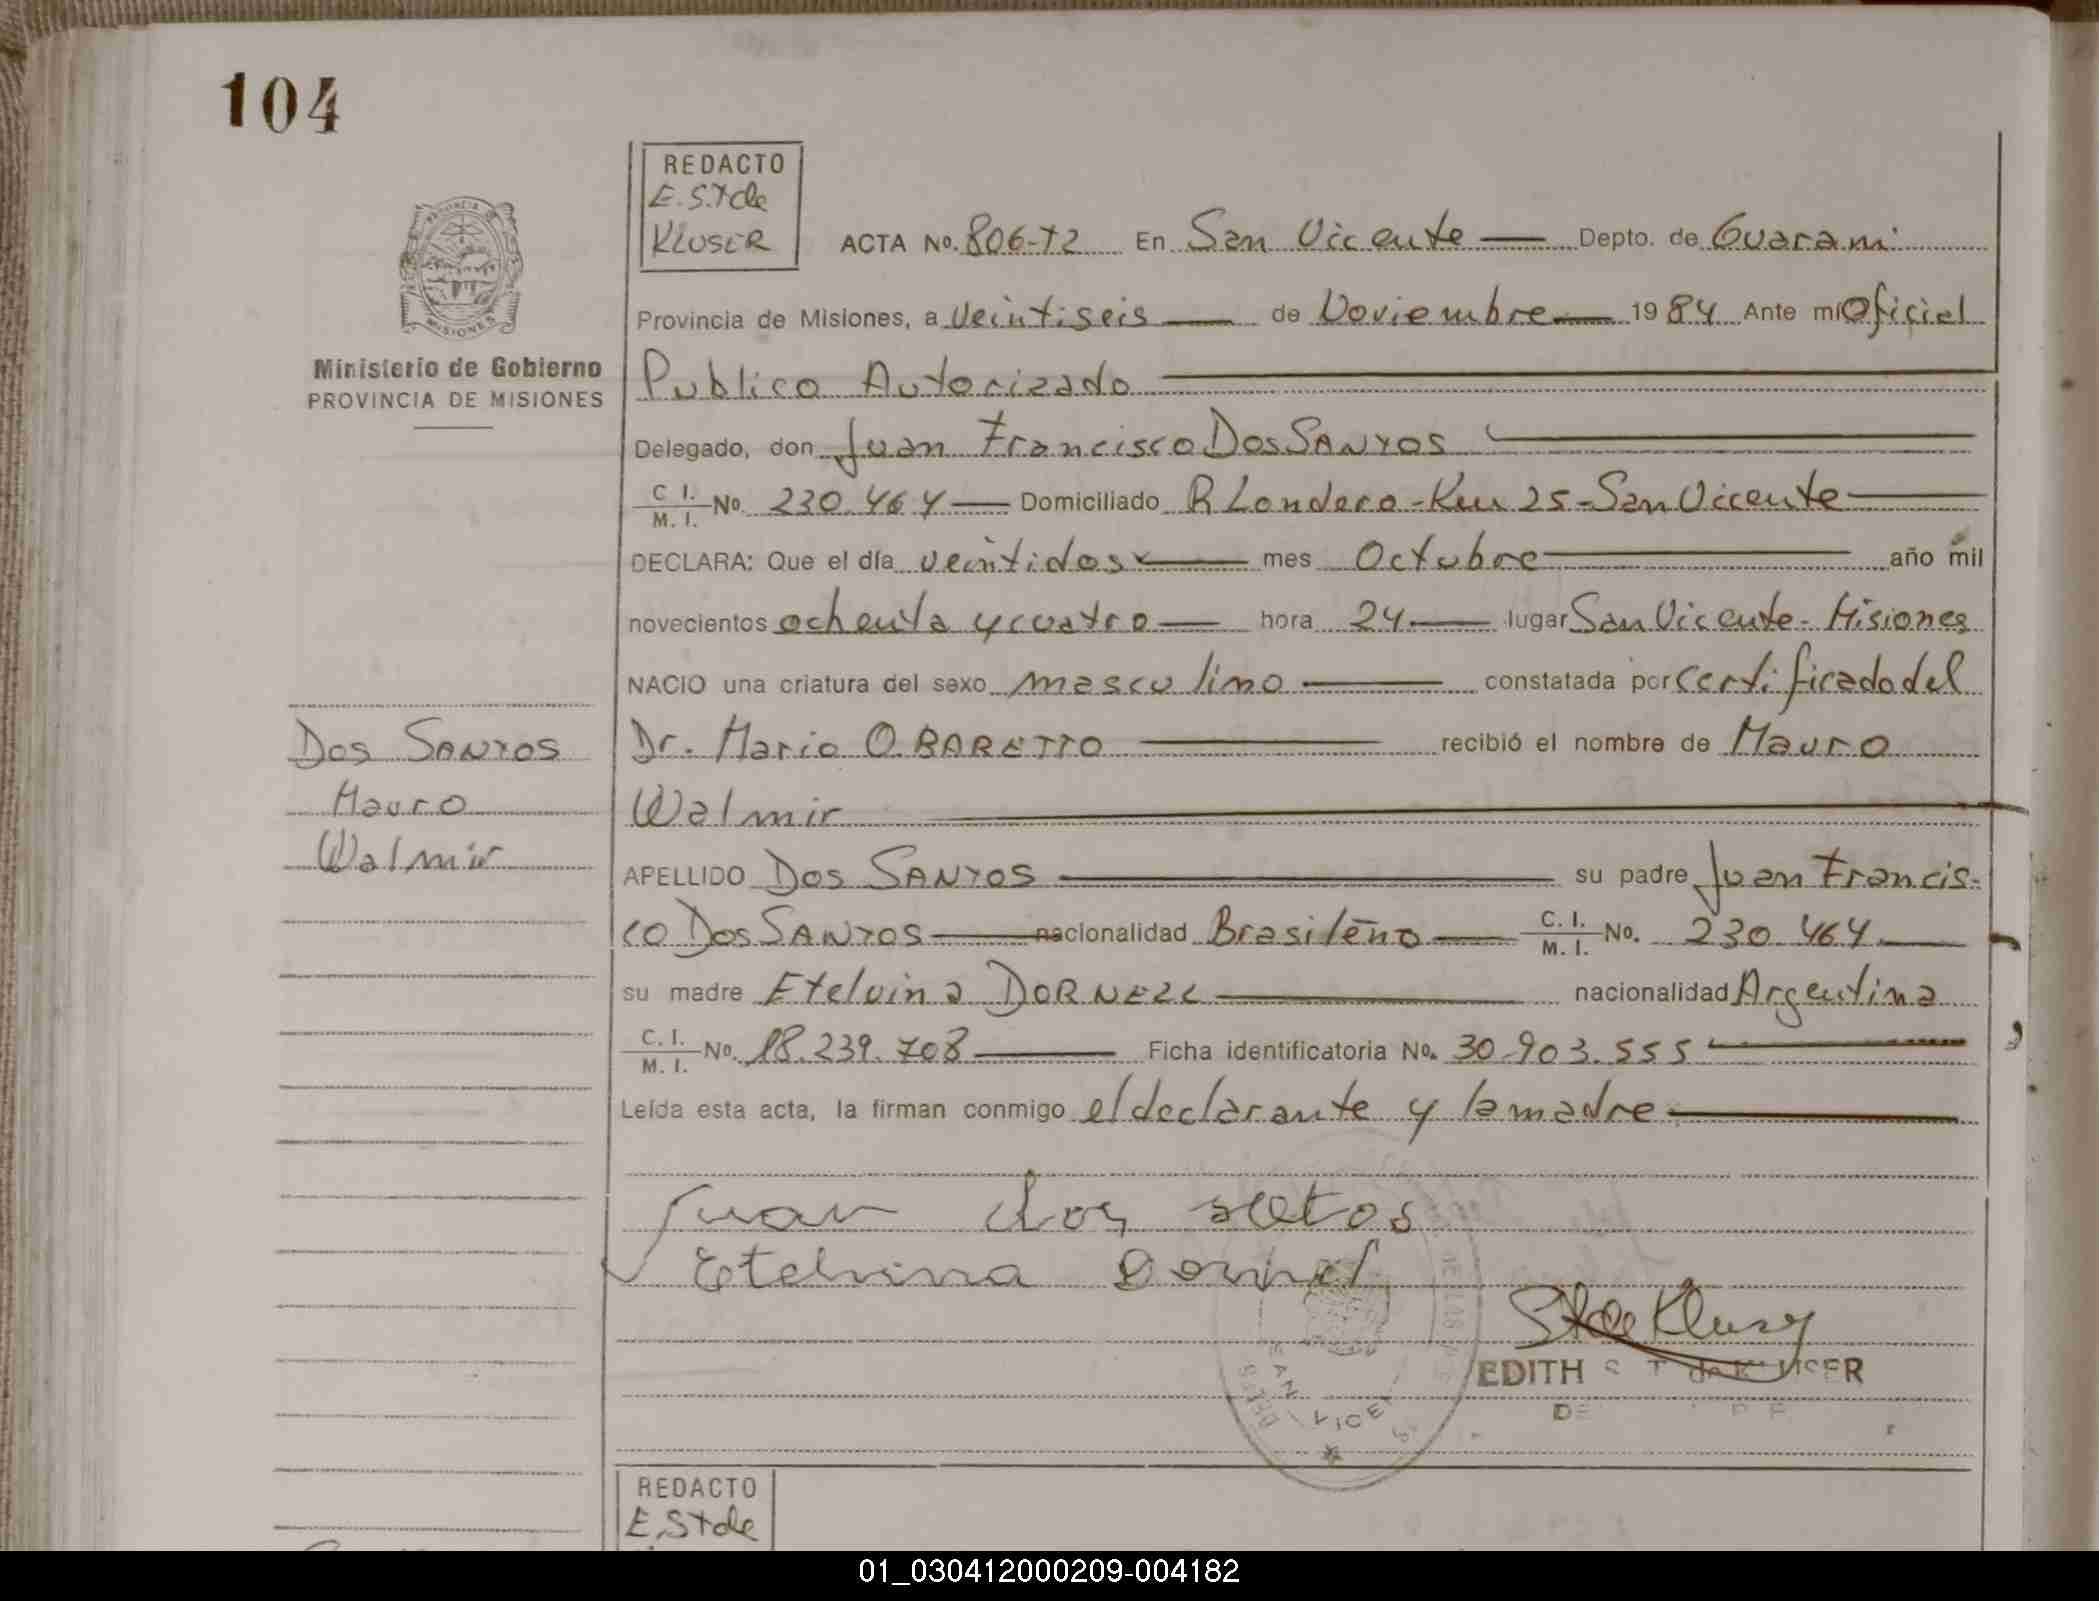 104
REDACTO
E.S.T de
KLUSER
ACTA No. 806-T2 En San Vicente Depto. de Guarani
PROVINCIA DE
MISIONES
Ministerio de Gobierno
PROVINCIA DE MISIONES
Provincia de Misiones, a veintiseis de Noviembre 1984 Ante mi Oficial
Publico Autorizado
Delegado, don Juan Francisco Dos SANTOS
C I. M. I. No. 230.464 Domiciliado R Londero - Km 25 - San Vicente
DECLARA: Que el día veintidos mes Octubre año mil
novecientos ochenta y cuatro hora 24 lugar San Vicente - Misiones
NACIO una criatura del sexo masculino constatada por certificado del
Dr. Mario O. BARETTO recibió el nombre de Mauro
Walmir
Dos SANTOS
Mauro
Walmir
APELLIDO Dos SANTOS su padre Juan Francis-
co Dos SANTOS nacionalidad Brasileño C. I. M. I. No. 230.464
su madre Etelvina DORNELL nacionalidad Argentina
C. I. M. I. No. 18.239.708 Ficha identificatoria No. 30.903.555
Leída esta acta, la firman conmigo el declarante y la madre
Juan dos satos
Etelvina Dornel
S T de Kluser
EDITH S T de KLUSER
SAN VICE
REDACTO
E.S.T de
01_030412000209-004182